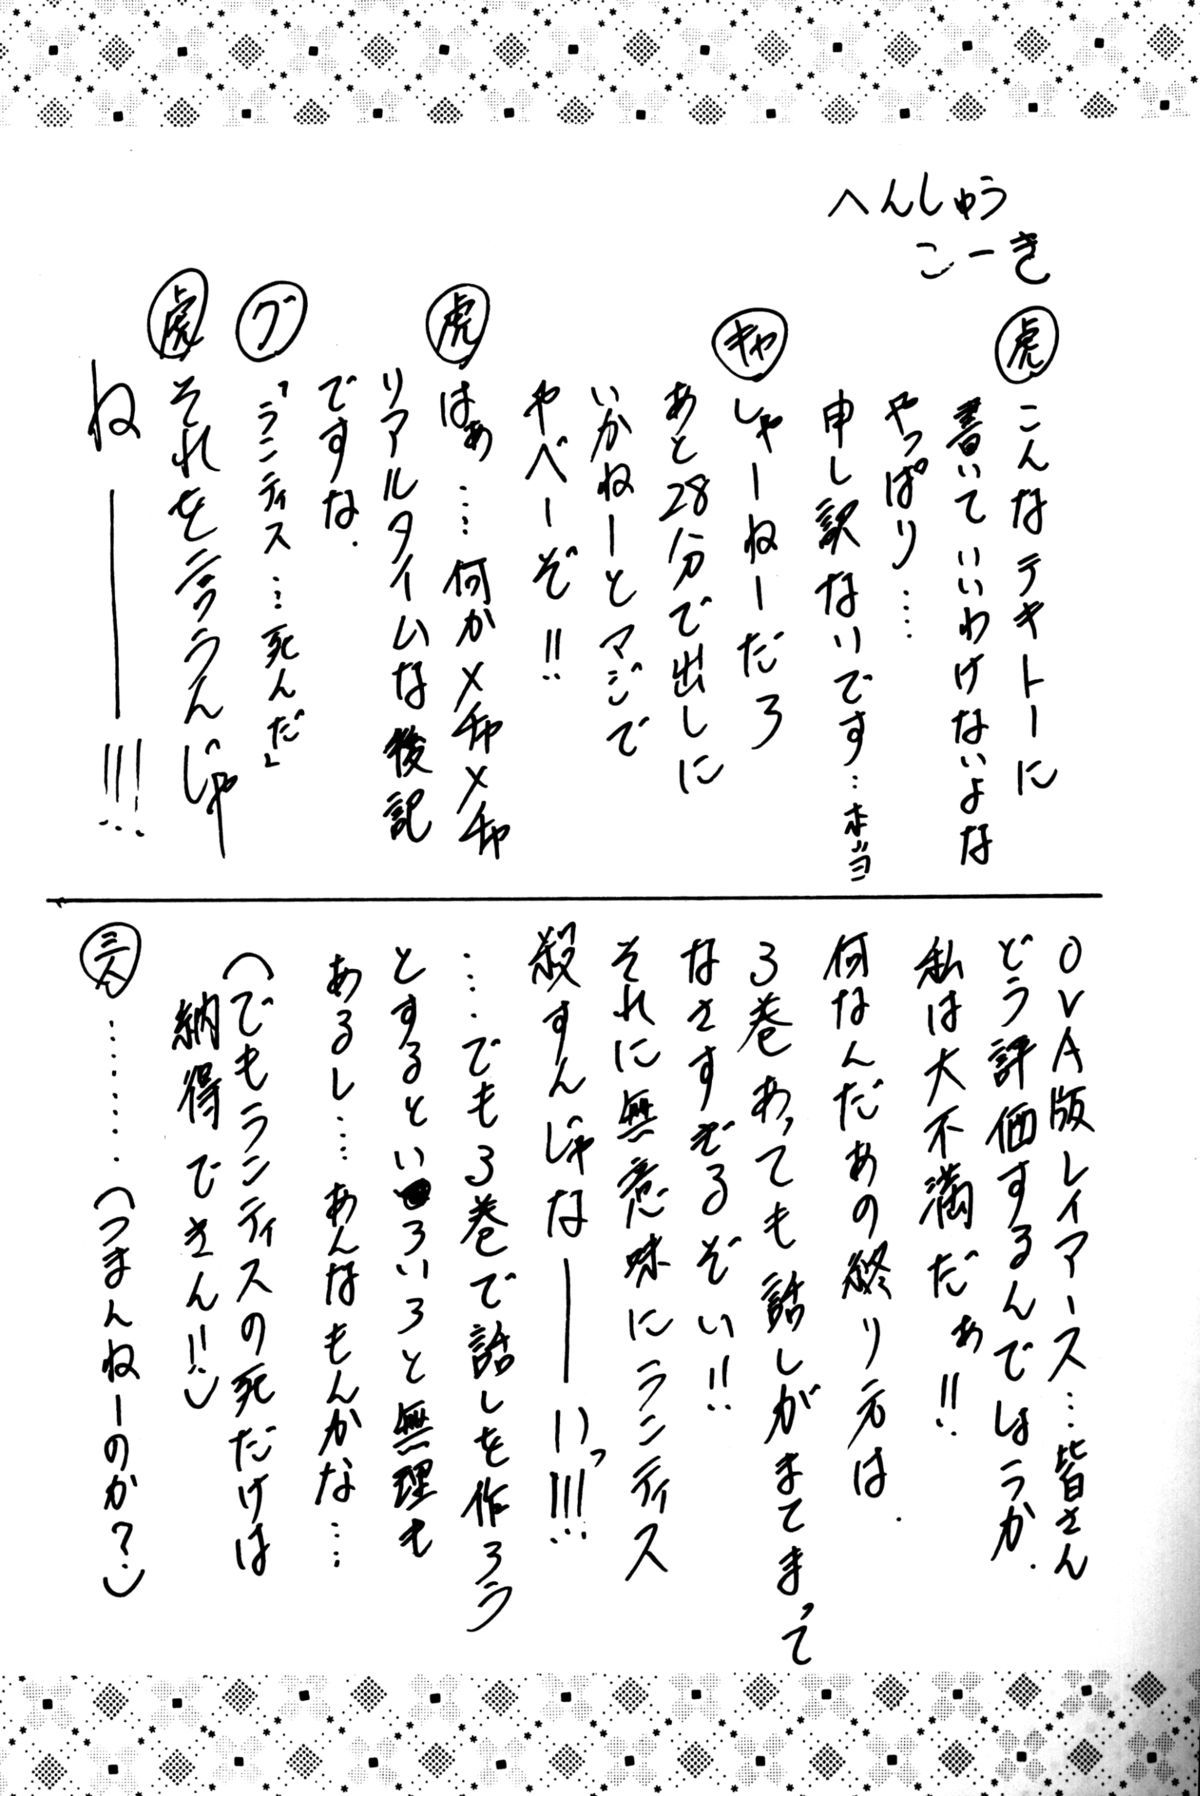 へんしゅう
こーき
虎 こんなテキトーに
書いていいわけないよな
やっぱり‥‥
申し訳ないです…本当
キャ しゃーねーだろ
あと28分で出しに
いかねーとマジで
やべーぞ!!
虎 はぁ‥‥何かメチャメチャ
リアルタイムな後記
ですな.
グ 「ランティス…死んだ」
虎 それを言うんじゃ
ね――!!!
OVA版レイアース…皆さん
どう評価するんでしょうか.
私は大不満だぁ!!
何なんだあの終り方は.
3巻あっても話しがまてまって
なさすぎるぞい!!
それに無意味にランティス
殺すんじゃな――いっ!!!
‥‥でも3巻で話しを作ろう
とするといろいろと無理も
あるし‥‥あんなもんかな‥‥
(でもランティスの死だけは
納得できん!!)
三人 ‥‥‥‥(つまんねーのか?)